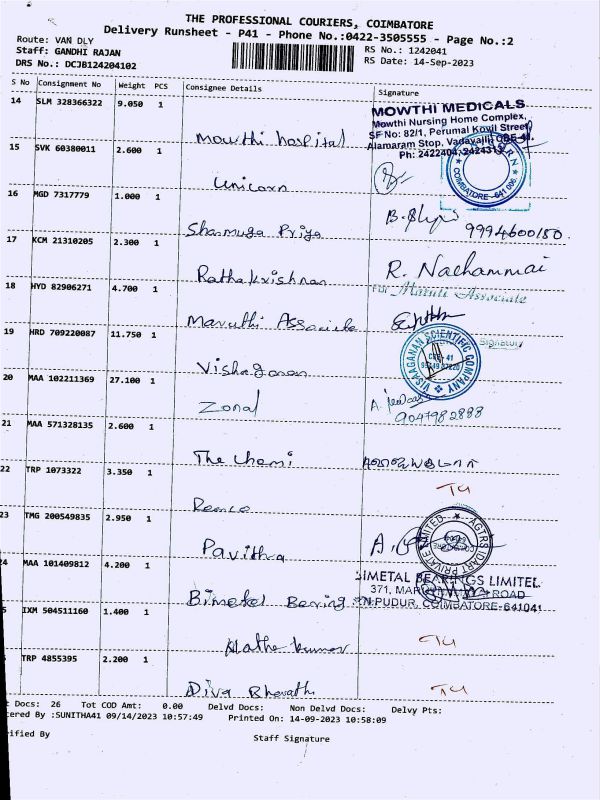 THE PROFESSIONAL COURIERS, COIMBATORE
Delivery Runsheet - P41 - Phone No.:0422-3505555 - Page No.:2
Route: VAN DLY
RS No.: 1242041
Staff: GANDHI RAJAN
RS Date: 14-Sep-2023
DRS No.: DCJB124204102
S No Consignment No Weight PCS Consignee Details Signature
14 SLM 328366322 9.050 1
MOWTHI MEDICALS
Mowthi Nursing Home Complex,
SF No: 82/1, Perumal Kovil Street,
Mowthi hospital
Alamaram Stop, Vadavalli
Ph: 2422404, 2424313
15 SVK 60380011 2.600 1
Unicorn
COIMBATORE - 641 006
16 MGD 7317779 1.000 1
Shamuga Priya
9994600150
17 KCM 21310205 2.300 1
Rathakrishnan R. Nachammai
18 HYD 82906271 4.700 1
For Maruti Associate
Maruthi Associate
Signatory
19 HRD 709220087 11.750 1
Vishaganan
VISAAGANAN SCIENTIFIC COMPANY
20 MAA 102211369 27.100 1
Zonal
9047982888
21 MAA 571328135 2.600 1
The Chemi
22 TRP 1073322 3.350 1
Remco
23 TMG 200549835 2.950 1
Pavithra
PRIVATE LIMITED
24 MAA 101409812 4.200 1
BIMETAL BEARINGS LIMITED
371, ROAD
N.PUDUR, COIMBATORE-641041
Bimetal Bering
5 IXM 504511160 1.400 1
Kathe kumar
TRP 4855395 2.200 1
Diva Bharathi
t Docs: 26 Tot COD Amt: 0.00 Delvd Docs: Non Delvd Docs: Delvy Pts:
tered By :SUNITHA41 09/14/2023 10:57:49 Printed On: 14-09-2023 10:58:09
rified By
Staff Signature